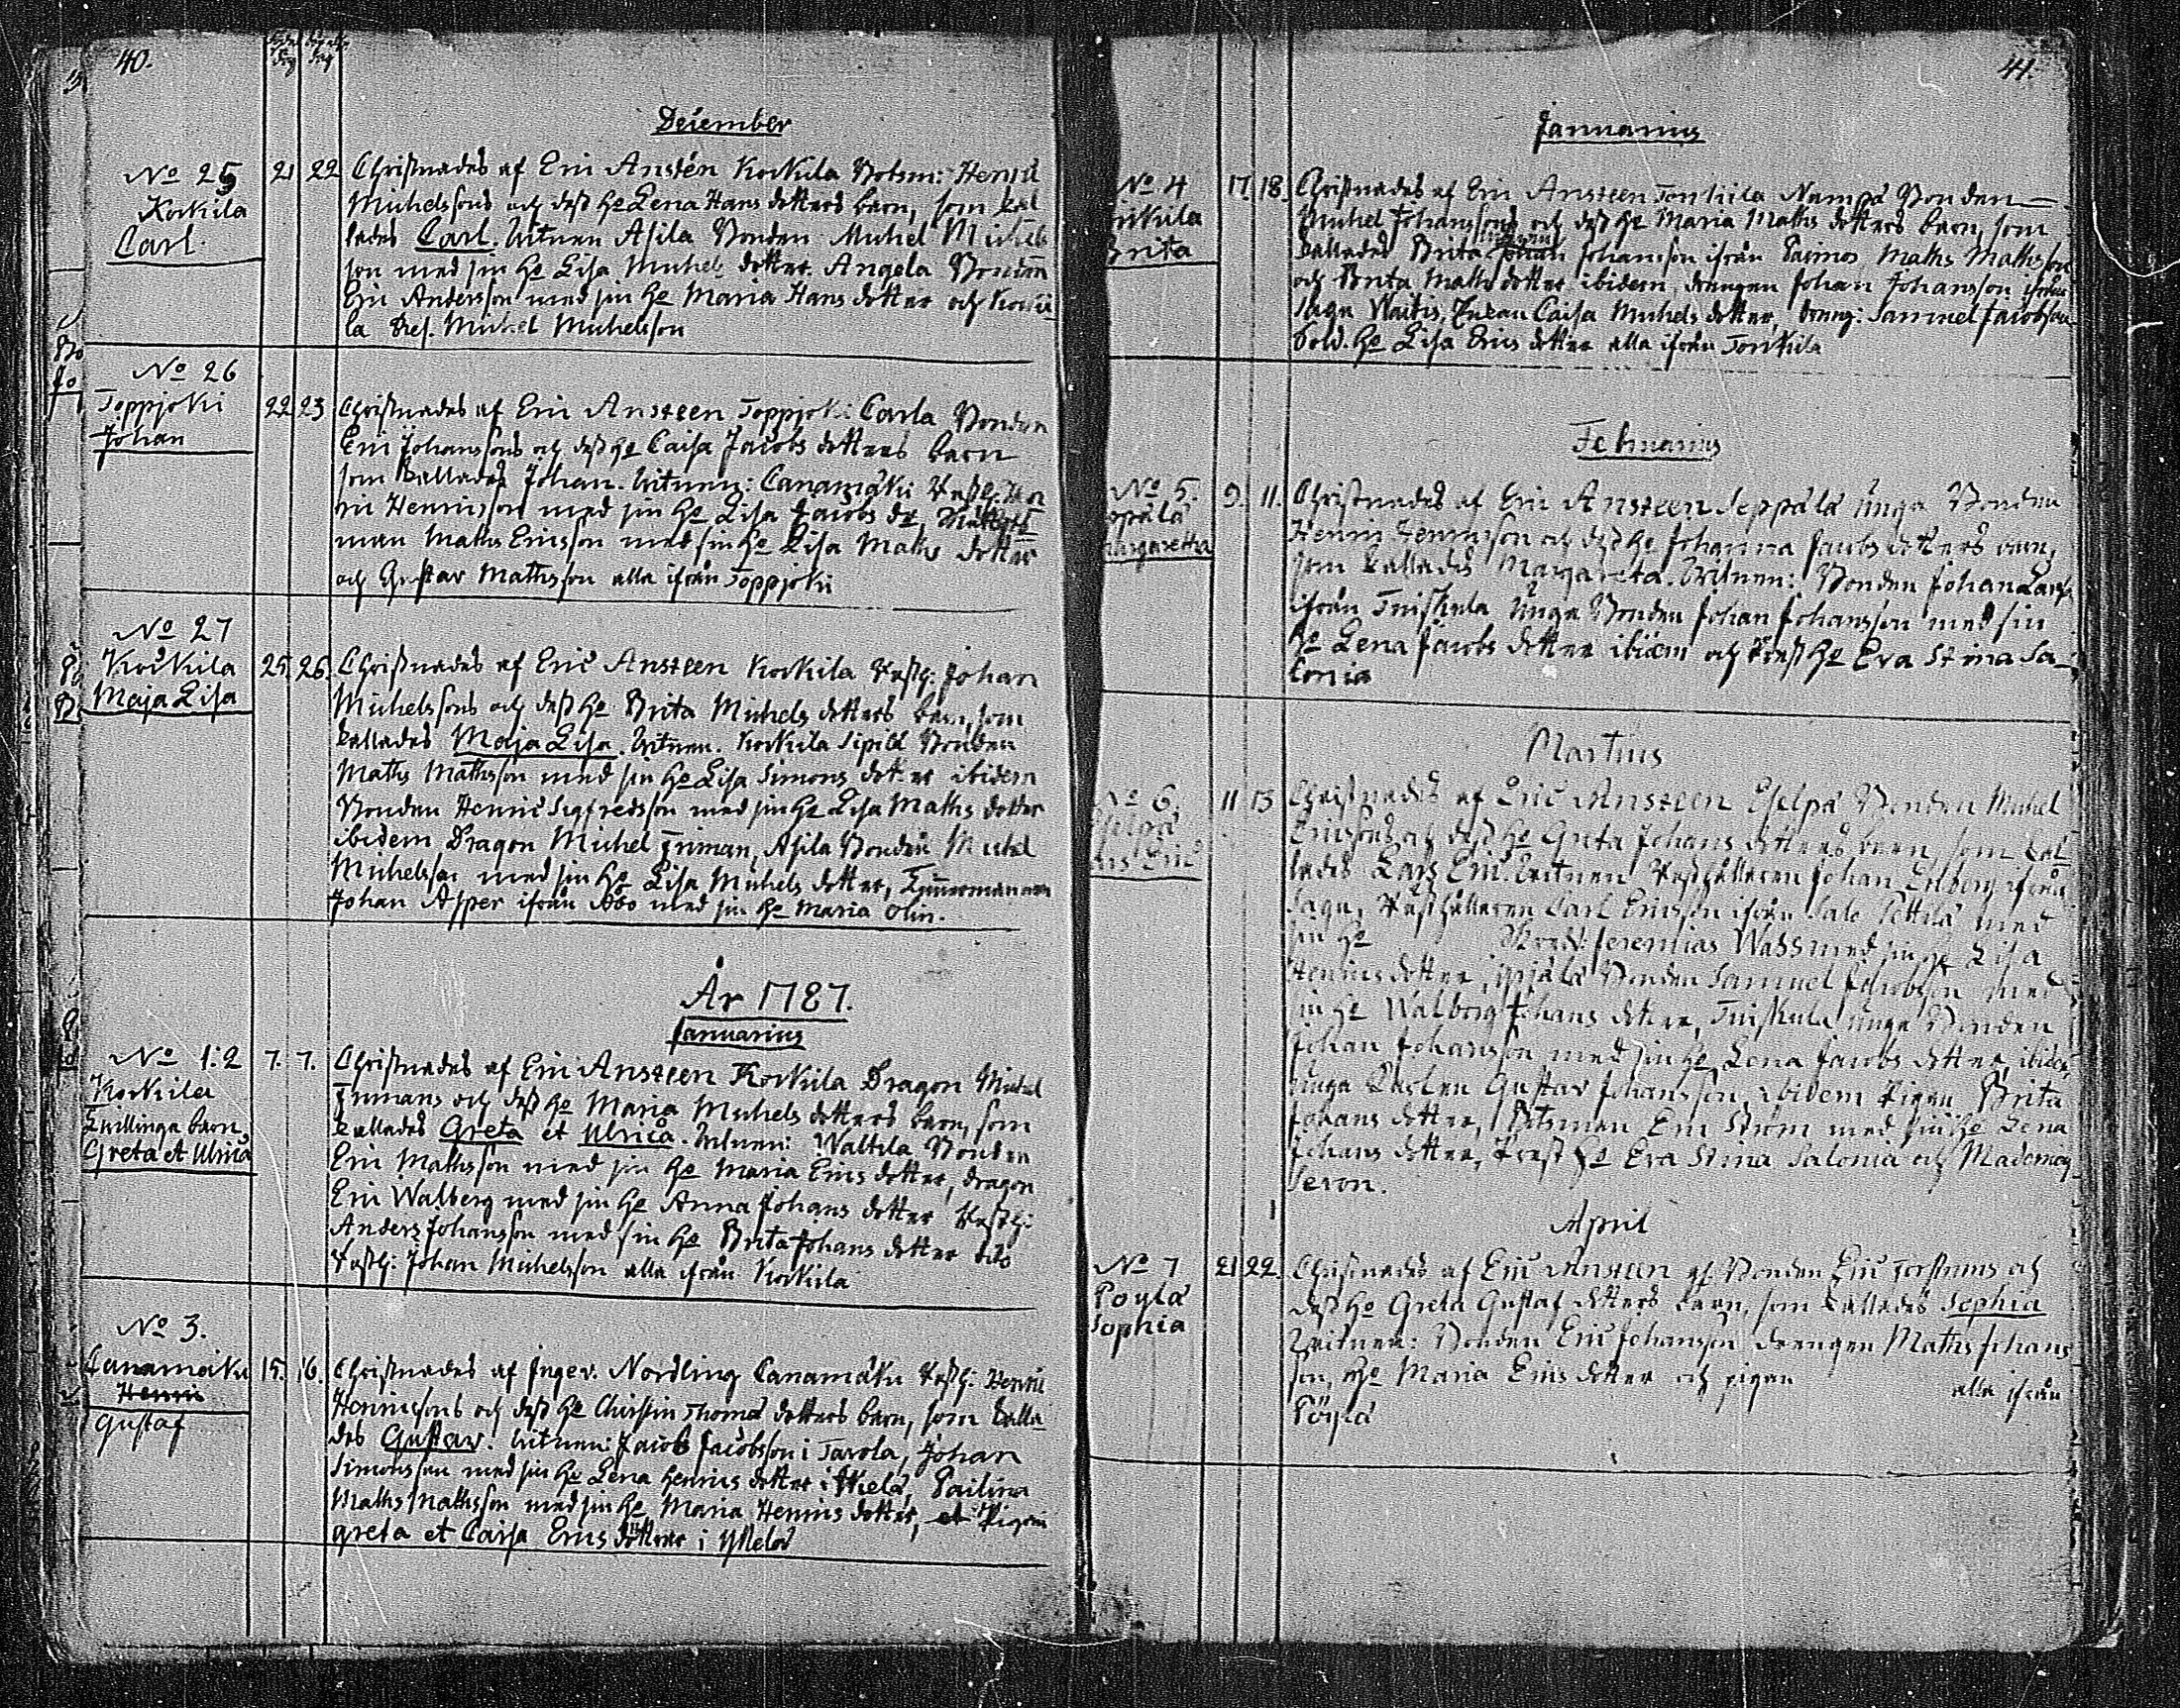 40.
December
No 25
Korkila
Carl.
21 22 Christnades af Eric Anstén Korkila Botsm: Henric
Michelssons och dess H: Lena Hans dotters barn, som kal
lades Carl. Witnen Asila Bonden Michel Michels
son med sin H: Lisa Michels dotter. Angela Bonden
Eric Andersson med sin H: Maria Hans dotter och Korki-
la Michel Michelsson
No 26
Toppjoki
Johan
22 23 Christnades af Eric Ansteen Toppjoki Carla Bonden
Eric Johanssons och dess H: Caisa Jacobs dotters barn
som kallades Johan. Witnen: Canamäki
Henricsson med sin H: Lisa Jacobs dr,
man Maths Ericsson med sin H: Lisa Maths dotter
och Gustav Mathsson alla ifrån Toppjoki
No 27
Korkila
Maja Lisa
25. 26. Christnades af Eric Ansteen Korkila Rusth: Johan
Michelssons och dess H: Brita Michels dotters barn, som
kallades Maja Lisa. Witnen. Korkila Sipilä Bonden
Maths Mathsson med sin H: Lisa Simons dotter ibidem
Bonden Henric Sigfredsson med sin H: Lisa Maths dotter
ibidem Dragon Michel Friman, Asila Bonden Michel
Michelsson med sin H: Lisa Michels dotter, Timmermannen
Johan Asper ifrån Åbo med sin H: Maria Olin.
År 1787.
Januarius
No 1:2
Korkila
Tvillinge barn
Greta et Ulrica
7. 7. Christnades af Eric Ansteen Korkila Dragon Michel
Frimans och dess H: Maria Michels dotters barn, som
kallades Greta et Ulrica. Witnen: Waltila Bonden
Eric Mathsson med sin H: Maria Erics dotter, dragon
Eric Walberg med sin H: Anna Johans dotter Rusth:
Anders Johansson med sin H: Brita Johans dotter
Rusth: Johan Michelsson alla ifrån Korkila
No 3.
Canamäki
Henric
Gustaf
15. 16. Christnades af Nordling Canamäki Rusth: Henric
Henricssons och dess H: Christin Thomä dotters barn, som kalla-
des Gustav. Witnen: Jacob Jacobsson i Tarola, Johan
Simonsson med sin H: Lena Henrics dotter i Pailina
Maths Mathsson med sin H: Maria Henrics dotter, et Pigorna
greta et Caisa Erics döttrar i
41.
Januarius
No 4
Brita
17. 18. Christnades af Eric Ansteen Torkila Nampa Bonden
Michel Johanssons och dess H: Maria Maths dotters barn, som
kallades Brita Johansson ifrån Paimos Maths Mathsson
och Brita Maths dotter ibidem, drengen Johan Johansson ifrån
Sagu Caisa Michels dotter, dreng: Samuel Jacobsson
Sold. H: Lisa Erics dotter alla ifrån Torkila
Februarius
No 5.
Margaretha
9. 11. Christnades af Eric Ansteen Seppälä Unga Bonden
Henric Henricsson och dess H: Johanna Jacobs dotters barn,
som kallades Margareta. Witnen: Bonden Johan Larss
ifrån Tuiskula Unga Bonden Johan Johansson med sin
H: Lena Jacobs dotter ibidem och Prest H: Eva Stina Sa-
lonia
Martius
No 6.
11 13 Christnades af Eric Ansteen Eselpä Bonden Michel
Ericssons och dess H: Greta Johans dotters barn, som kal-
lades Lars Eric. Witnen Rusthållaren Johan Enberg ifrån
Sagu, Rusthållaren Carl Ericsson ifrån Salo Pettilä med
sin H: Jeremias Wass med sin H: Lisa
Henrics dotter, Bonden Samuel Jacobsson med
sin H: Walborg Johans dotter, Tuiskula Unga Bonden
Johan Johansson med sin H: Lena Jacobs dotter, ibidem,
unga Gustav Johansson, ibidem Pigan Brita
Johans dotter, Botsman Eric Ström med sin H: Lena
Johans dotter, Prest H: Eva Stina Salonia och Mademoi-
seron.
April
No 7
Poylä
Sophia
21 22. Christnades af Eric Ansteen af Bonden Eric och
dess H: Greta Gustaf dotters barn, som kallades Sophia
Witnen: Bonden Eric Johansson drengen Maths Johans
son, H: Maria Erics dotter och pigan alla ifrån
Pöylä